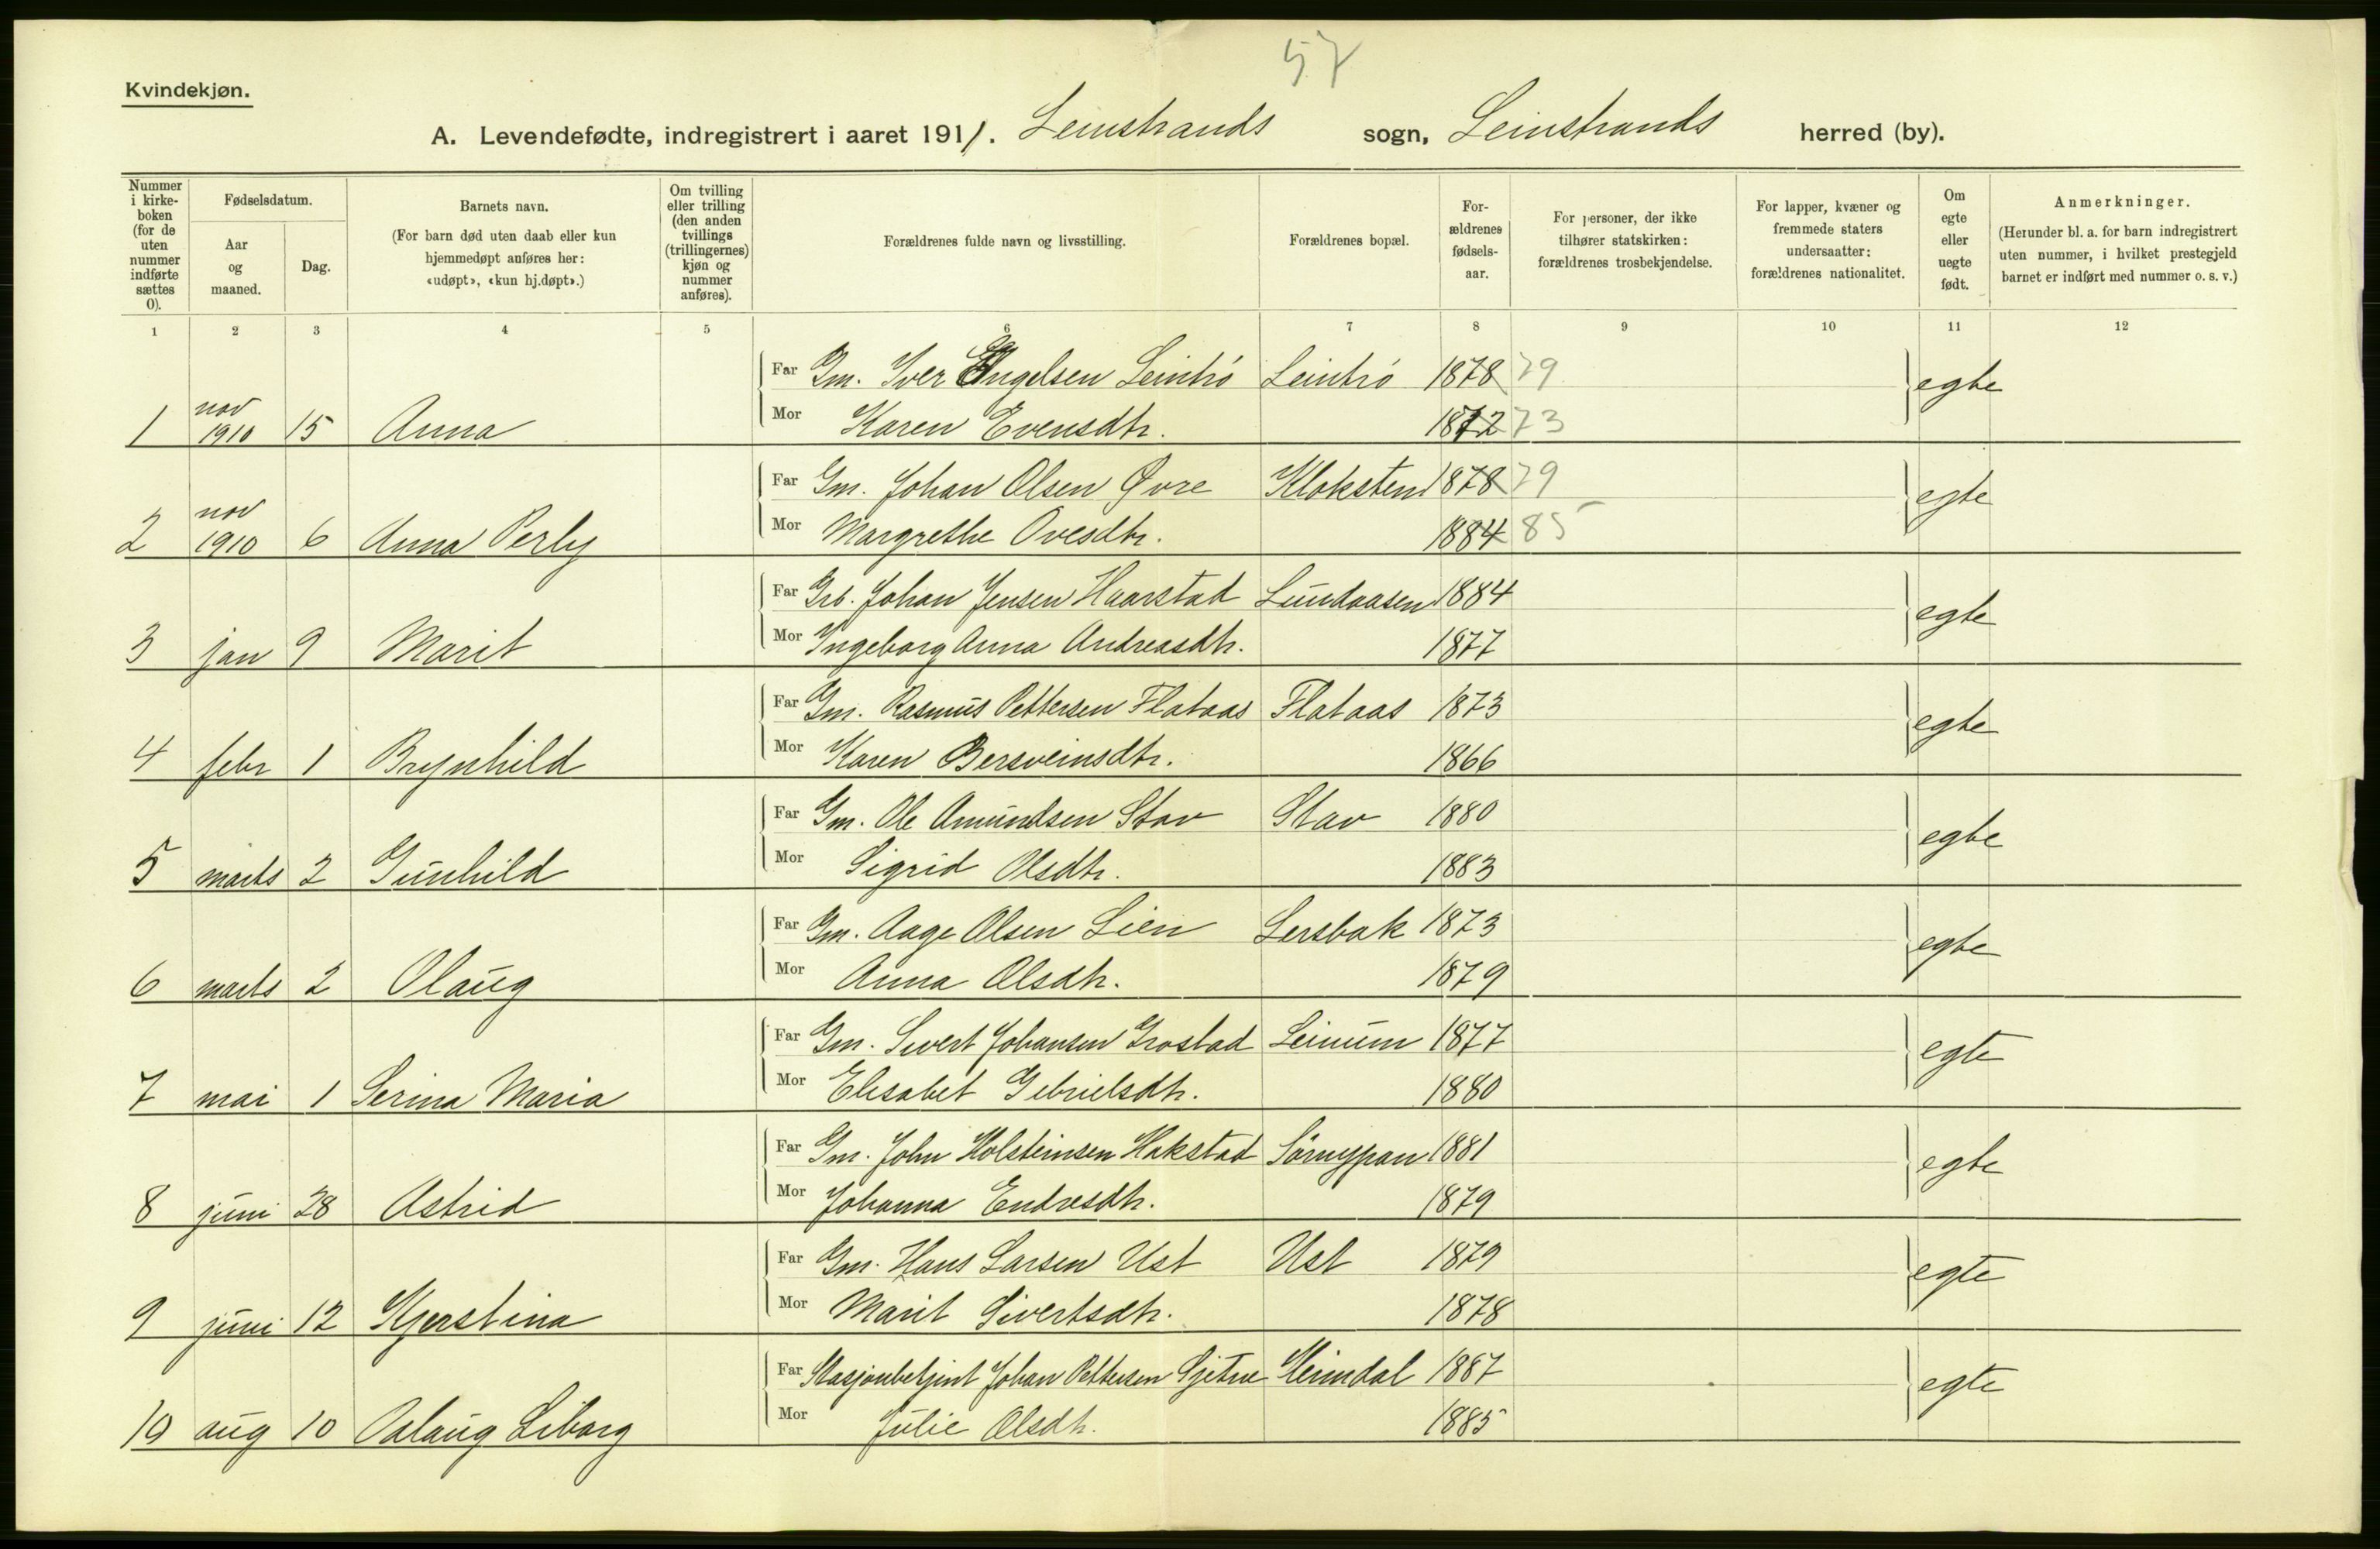 57
Kvindekjøn.
A. Levendefødte, indregistrert i aaret 1911. Leinstrands sogn, Leinstrands herred (by).
Nummer i kirkeboken (for de uten nummer indførte sættes 0).
Fødselsdatum.
Aar og maaned.
Dag.
Barnets navn.
(For barn død uten daab eller kun hjemmedøpt anføres her: «udøpt», «kun hj.døpt».)
Om tvilling eller trilling (den anden tvillings (trillingernes) kjøn og nummer anføres).
Forældrenes fulde navn og livsstilling.
Forældrenes bopæl.
Forældrenes fødselsaar.
For personer, der ikke tilhører statskirken: forældrenes trosbekjendelse.
For lapper, kvæner og fremmede staters undersaatter: forældrenes nationalitet.
Om egte eller uegte født.
Anmerkninger.
(Herunder bl. a. for barn indregistrert uten nummer, i hvilket prestegjeld barnet er indført med nummer o. s. v.)
1 2 3 4 5 6 7 8 9 10 11 12
Far Gm. Iver Engelsen Leintrö Leintrö 1878 79 egte
1 nov 1910 15 Anna Mor Karen Evensdtr. 1872 73
Far Gm. Johan Olsen Øvre Kloksten 1878 79 egte
2 nov 1910 6 Anna Perly Mor Margrethe Ovesdtr. 1884 85
Far Grb. Johan Jensen Haarstad Lundaasen 1884 egte
3 jan 9 Marit Mor Ingeborg Anna Andreasdtr. 1877
Far Gm. Rasmus Pettersen Flataas Flataas 1873 egte
4 febr 1 Brynhild Mor Karen Bersveinsdtr. 1866
Far Gm. Ole Amundsen Stav Stav 1880 egte
5 marts 2 Gunhild Mor Sigrid Olsdtr. 1883
Far Gm. Aage Olsen Lien Lersbak 1873 egte
6 marts 2 Olaug Mor Anna Olsdtr. 1879
Far Gm. Sivert Johansen Grostad Leinum 1877 egte
7 mai 1 Serina Maria Mor Elisabet Gebrielsdtr. 1880
Far Gm. John Holsteinsen Hakstad Sörnypan 1881 egte
8 juni 28 Astrid Mor Johanna Endresdtr. 1879
Far Gm. Hans Larsen Ust Ust 1879 egte
9 juni 12 Kjerstina Mor Marit Sivertsdtr. 1878
Far Stasjonbetjent Johan Pettersen Sjetne Heimdal 1887 egte
10 aug 10 Aslaug Liborg Mor Julie Olsdtr. 1885